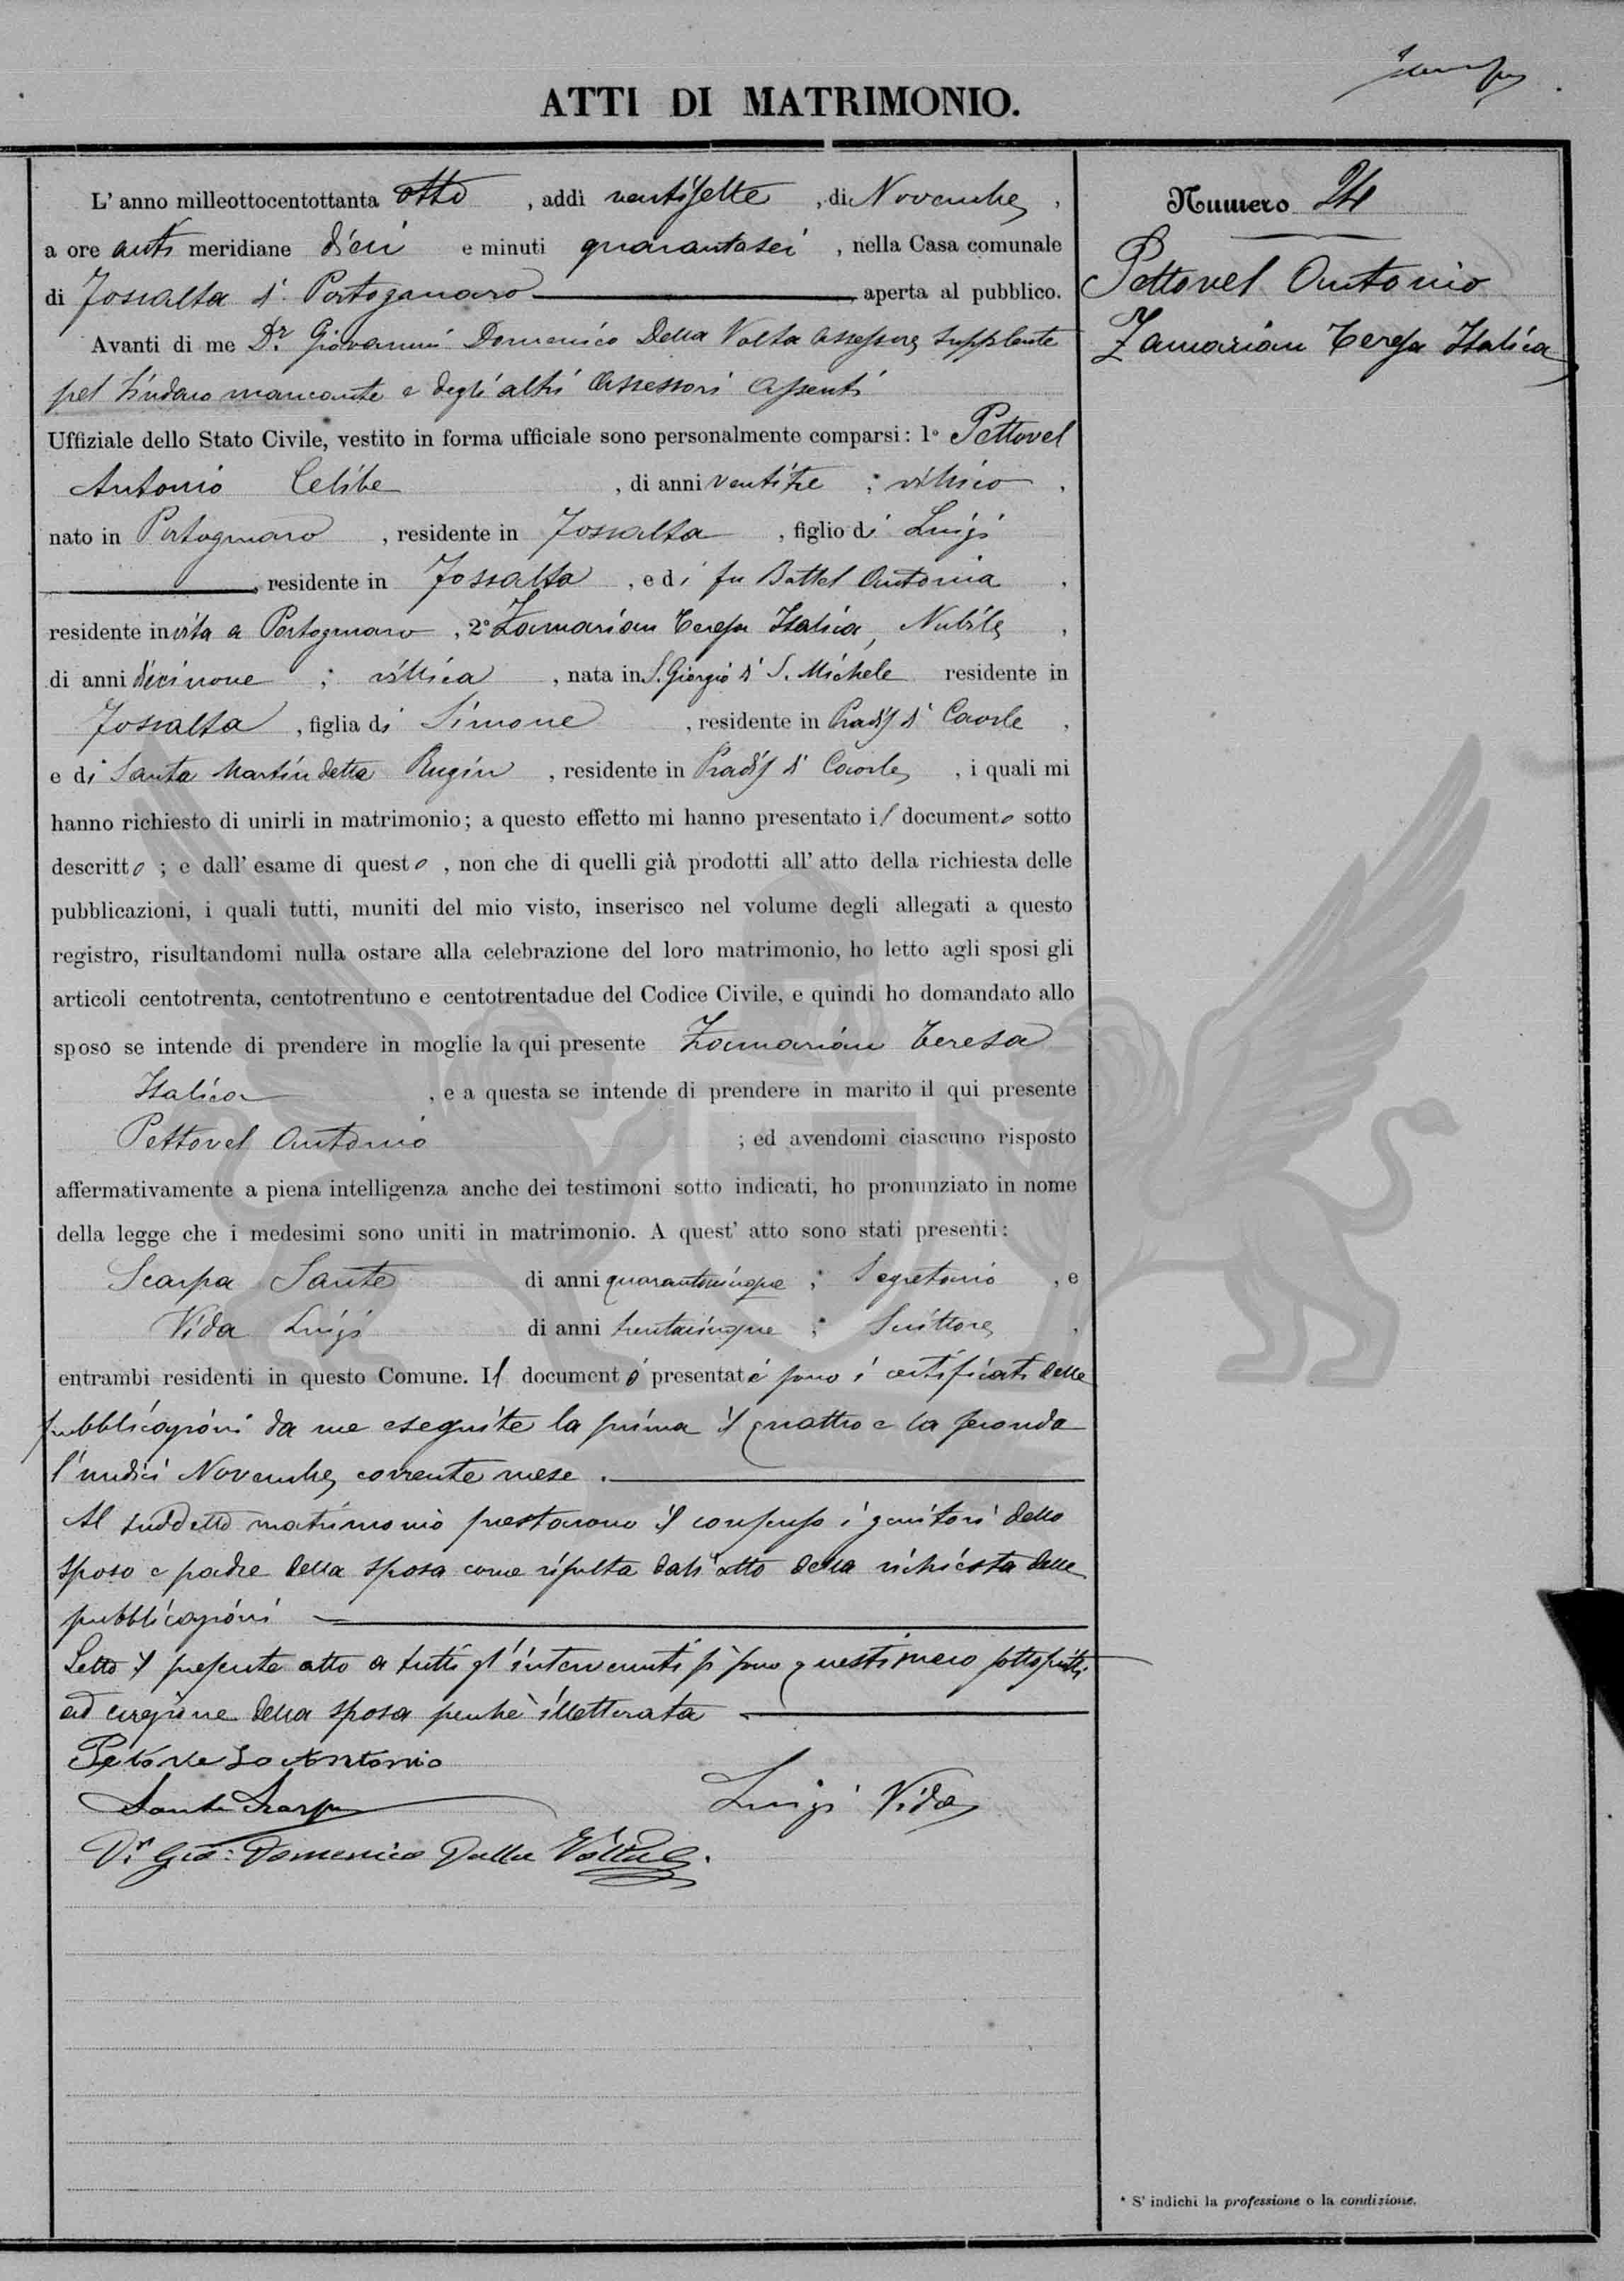 ATTI DI MATRIMONIO.
L' anno milleottocentottanta otto, addì ventisette, di Novembre,
a ore anti meridiane dieci e minuti quarantasei, nella Casa comunale
di Fossalta di Portogruaro aperta al pubblico.
Avanti di me Dr. Giovanni Domenico Dalla Volta Assessore supplente
pel Sindaco mancante e degli altri Assessori assenti
Uffiziale dello Stato Civile, vestito in forma ufficiale sono personalmente comparsi: 1° Pettovel
Antonio Celibe, di anni ventitre; villico,
nato in Portogruaro, residente in Fossalta, figlio di Luigi
, residente in Fossalta, e di fu Battel Antonia,
residente in vita a Portogruaro, 2° Zamarian Teresa Italica, Nubile,
di anni dicinove; villica, nata in S. Giorgio di S. Michele residente in
Fossalta, figlia di Simone, residente in Pradis di Caorle,
e di Santa Martin detta Rugin, residente in Pradis di Caorle, i quali mi
hanno richiesto di unirli in matrimonio; a questo effetto mi hanno presentato il documento sotto
descritto; e dall' esame di questo, non che di quelli già prodotti all' atto della richiesta delle
pubblicazioni, i quali tutti, muniti del mio visto, inserisco nel volume degli allegati a questo
registro, risultandomi nulla ostare alla celebrazione del loro matrimonio, ho letto agli sposi gli
articoli centotrenta, centotrentuno e centotrentadue del Codice Civile, e quindi ho domandato allo
sposo se intende di prendere in moglie la qui presente Zamarian Teresa
Italica, e a questa se intende di prendere in marito il qui presente
Pettovel Antonio; ed avendomi ciascuno risposto
affermativamente a piena intelligenza anche dei testimoni sotto indicati, ho pronunziato in nome
della legge che i medesimi sono uniti in matrimonio. A quest' atto sono stati presenti:
Scarpa Sante di anni quarantacinque; Segretario, e
Vida Luigi di anni trentacinque; Scrittore,
entrambi residenti in questo Comune. Il documento presentati sono i certificati delle
pubblicazioni da me eseguite la prima il quattro e la seconda
l'undici Novembre corrente mese.
Al suddetto matrimonio prestarono il consenso i genitori dello
sposo e padre della sposa come risulta dall'atto della richiesta delle
pubblicazioni
Letto il presente atto a tutti gl'intervenuti si sono questi meco sottoscritti
ad eccezione della sposa perchè illetterata
Petovello Antonio
Sante Scarpa Luigi Vida
Dr Gio: Domenico Dalla Volta.
Numero 24
Pettovel Antonio
Zamarian Teresa Italica
* S' indichi la professione o la condizione.